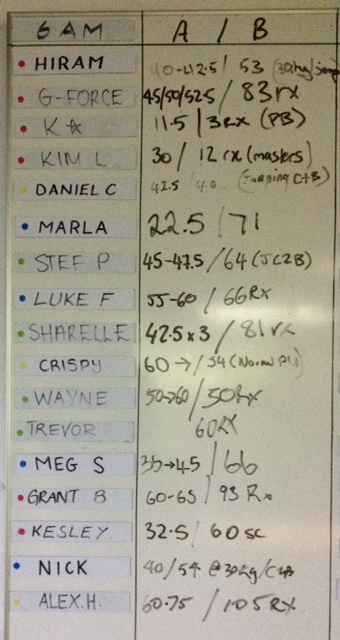 6 AM A / B
HIRAM 40-42.5 / 53
G-FORCE 45/50/52.5 / 83 rx
K☆ 11.5 / 3RX (PB)
KIM L 30 / 12 rx (masters)
DANIEL C 42.5 / 40 (Jumping C+B)
MARLA 22.5 / 71
STEF P 45-47.5 / 64 (JC2B)
LUKE F 55-60 / 66 Rx
SHARELLE 42.5 x 3 / 81 rx
CRISPY 60 → / 54 (Normal PU)
WAYNE 50→60 / 50 Rx
TREVOR 60 RX
MEG S 35→45 / 66
GRANT B 60-65 / 93 Rx
KESLEY 32.5 / 60 sc
NICK 40 / 54 @ 30kg
ALEX.H. 60.75 / 105 RX